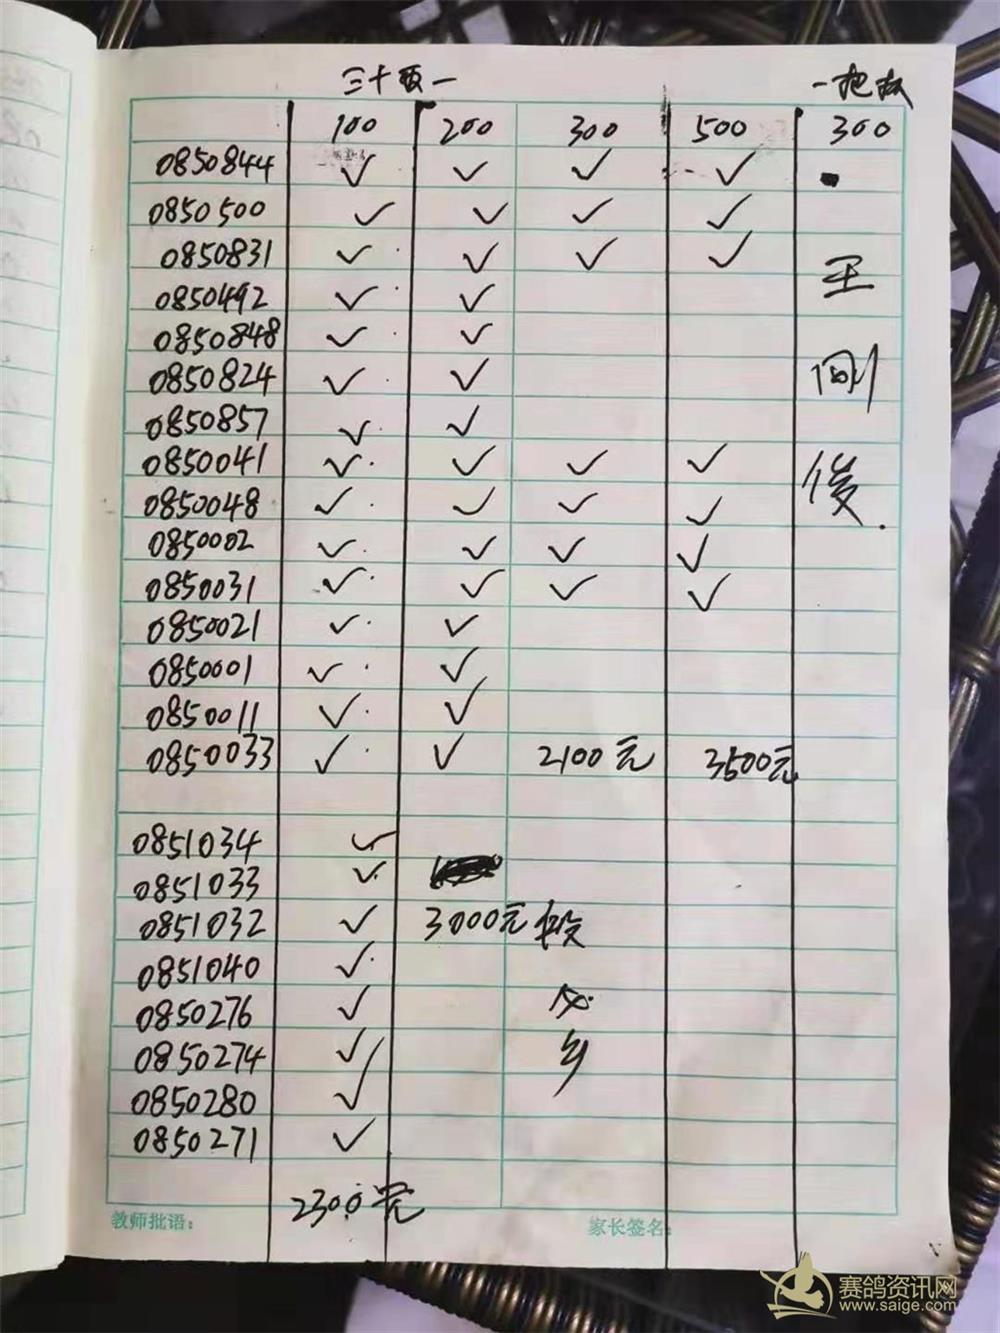 三十取一 一把抓
100 200 300 500 300
0850844 ✓ ✓ ✓ ✓
0850500 ✓ ✓ ✓ ✓
0850831 ✓ ✓ ✓ ✓ 王
0850492 ✓ ✓
0850848 ✓ ✓
0850824 ✓ ✓ 刚
0850857 ✓ ✓
0850041 ✓ ✓ ✓ ✓
0850048 ✓ ✓ ✓ ✓ 俊
0850002 ✓ ✓ ✓ ✓
0850031 ✓ ✓ ✓ ✓
0850021 ✓ ✓
0850001 ✓ ✓
0850011 ✓ ✓
0850033 ✓ ✓ 2100元 3500元
0851034 ✓
0851033 ✓
0851032 ✓ 3000元
0851040 ✓
0850276 ✓
0850274 ✓
0850280 ✓
0850271 ✓
2300元
教师批语： 家长签名：
赛鸽资讯网
www.saige.com